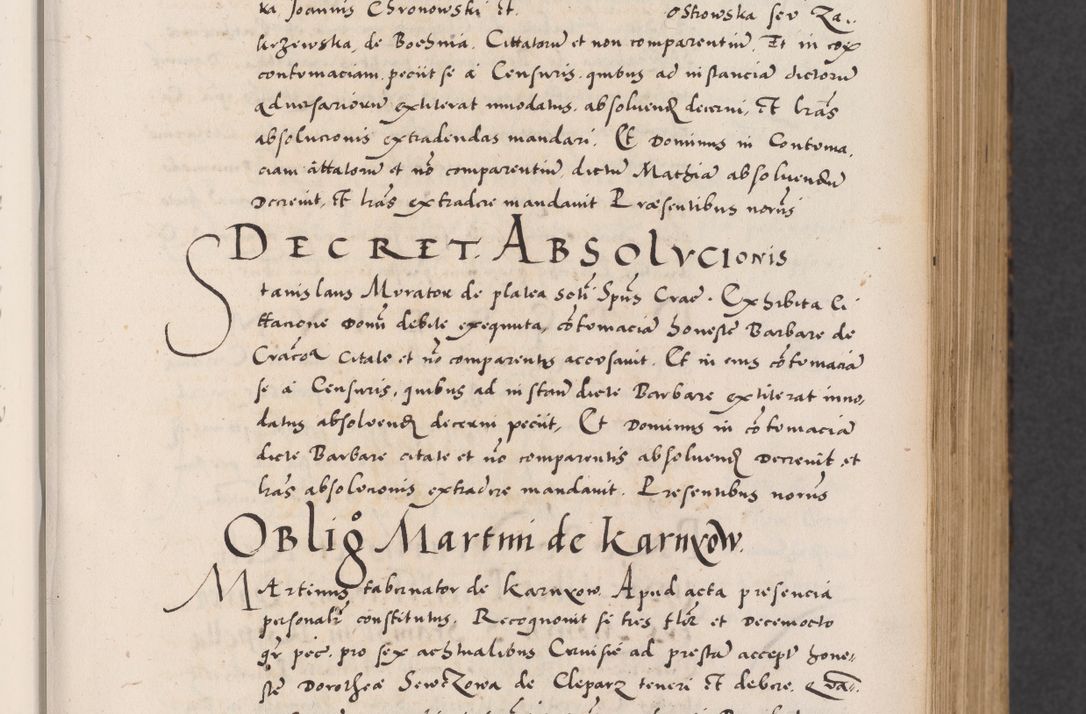 ka Joannis Chronowski et ostrowska seu Za..
krzewska, de Bochnia. Cittatorum et non comparentium. Et in eorum
contumaciam. peciit se a Censuris. quibus ad instanciam dictorum
adversariorum extiterat innodatus. absolvendum decerni, Et lras
absolucionis extradendas mandari. Et Dominus in Contuma,
ciam cittatorum et non comparentium, dictum Mathiam absolvendum
Decrevit, Et lras extradere mandavit Præsentibus notariis
DECRET. ABSOLVCIONIS
Stanislaus Murator de platea Scti Spus Crac. Exhibita Ci
ttacione Domini debite exequuta, contumaciam honeste Barbare de
Cracovia Citate et non comparentis accusavit. Et in eius contumaciam
se a Censuris, quibus ad instanciam dicte Barbare extiterat inno,
datus absolvendum decerni peciit, Et Dominus in contumaciam
dicte Barbare citate et non comparentis absolvendum Decrevit, et
lras absolucionis extradere mandavit. Presentibus notariis
Oblig Martini de Karnyow.
Martinus tabernator de Karnyow. Apud acta presencia
personaliter constitutus. Recognovit se tres flor et Decemocto
gr pec. pro sex achtualibus Cervisie ad prestam accept hone,
ste Dorothea de Cleparz teneri Et debere.